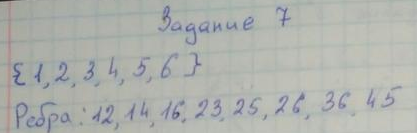 Задание 7
{1, 2, 3, 4, 5, 6}
Ребра: 12, 14, 16, 23, 25, 26, 36, 45